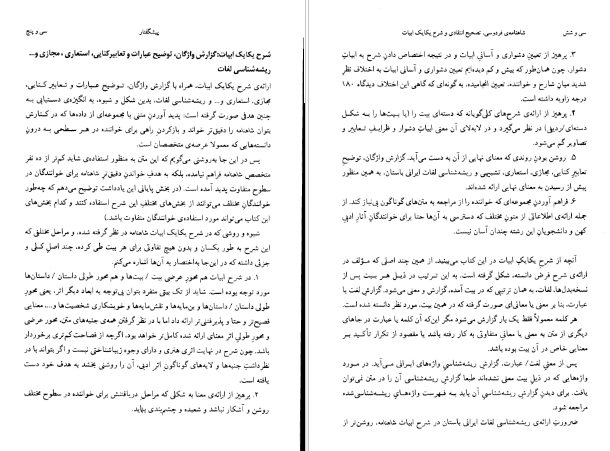 سی و پنج
پیشگفتار
شرح یکایک ابیات: گزارش واژگان، توضیح عبارات و تعابیر کنایی، استعاری، مجازی و...
ریشه‌شناسی لغات
ارائه‌ی شرح یکایک ابیات، همراه با گزارش واژگان، توضیح عبارات و تعابیر کنایی،
مجازی، استعاری و... و ریشه‌شناسی لغات، بدین شکل و شیوه، به انگیزه‌ی دستیابی به
چنین هدفی صورت گرفته است: پدید آوردن متنی با مجموعه‌ای از داده‌ها که در کنارش
بتوان شاهنامه را دقیق‌تر خواند و بازکردن راهی برای خواننده در هر سطحی به درون
دانسته‌هایی که معمولا عرصه‌ی متخصصان است.
پس در این جا به‌روشنی می‌گویم که این متن به منظور استفاده‌ی شاید کم‌تر از ده نفر
متخصص شاهنامه فراهم نیامده، بلکه به هدف خواندن دقیق‌تر شاهنامه برای خوانندگان در
سطوح متفاوت پدید آمده است. (در بخش پایانی این یادداشت توضیح می‌دهم که چه‌طور
خوانندگان مختلف می‌توانند از بخش‌های مختلف این شرح استفاده کنند و کدام بخش‌های
این کتاب می‌تواند مورد استفاده‌ی خوانندگان متفاوت باشد.)
شیوه و روشی که در شرح یکایک ابیات شاهنامه در نظر گرفته شده، و مراحل مختلفی که
این شرح به طور یکسان و بدون هیچ تفاوتی برای هر بیت طی کرده، چند اصل کلی و
جزئی داشته که در این‌جا به‌اختصار به آن‌ها اشاره می‌کنم.
۱. در شرح ابیات هم محور عرضی بیت / بیت‌ها و هم محور طولی داستان / داستان‌ها
مورد توجه بوده است. شاید از تک بیتی منفرد بتوان بی‌توجه به ابعاد دیگر اثر، یعنی محور
طولی داستان / داستان‌ها و بن‌مایه‌ها و نقش‌مایه‌ها و خویشکاری شخصیت‌ها و... معنایی
فصیح‌تر و حتا و پذیرفتنی‌تر ارائه داد اما با در نظر گرفتن همه‌ی جنبه‌های متن، محور عرضی
و محور طولی اثر معنای ارائه شده کامل‌تر خواهد بود. اگرچه از فصاحت کم‌تری برخوردار
باشد. چون شرح در نهایت اثری هنری و دارای وجوه زیباشناختی نیست و اگر بتواند با در
نظرداشتِ جنبه‌ها و لایه‌های گوناگون اثر ادبی، آن را روشنی بخشد به هدف خود دست
یافته است.
۲. پرهیز از ارائه‌ی معنا به شکلی که مراحل دریافتنش برای خواننده در سطوح مختلف
روشن و آشکار نباشد و شعبده و چشم‌بندی بنماید.
سی و شش
شاهنامه‌ی فردوسی، تصحیح انتقادی و شرح یکایک ابیات
۳. پرهیز از تعیین دشواری و آسانی ابیات و در نتیجه اختصاص دادن شرح به ابیات
دشوار، چون همان‌طور که بیش و کم دیده‌ایم تعیین دشواری و آسانی ابیات به اختلاف نظر
شدید میان شارح و خواننده، تعیین انجامیده، به گونه‌ای که گاهی این اختلاف دیدگاه ۱۸۰
درجه زاویه داشته است.
۴. پرهیز از ارائه‌ی شرح‌های کلی‌گویانه که دسته‌ای بیت را (یا بیت‌ها را به شکل
دسته‌ای/ردیفی) در نظر می‌گیرد و در لابه‌لای آن معنی ابیات دشوار و ظرایف تعابیر و
تصاویر گم می‌شود.
۵. روشن بودن روندی که معنای نهایی از آن به دست می‌آید. گزارش واژگان، توضیح
تعابیر کنایی، مجازی، استعاری، تشبیهی و ریشه‌شناسی لغات ایرانی باستان، به همین منظور
پیش از رسیدن به معنای نهایی ارائه شده‌اند.
۶. فراهم آوردن مجموعه‌ای که خواننده را از مراجعه به متن‌های گوناگون بی‌نیاز کند. از
جمله ارائه‌ی اطلاعاتی از متون مختلف که دسترسی به آن‌ها حتا برای خوانندگان آثار ادبی
کهن و دانشجویان این رشته چندان آسان نیست.
آنچه از شرح یکایک ابیات در این کتاب می‌بینید، از همین چند اصلی که مؤلف در
ارائه‌ی شرح فرض دانسته، شکل گرفته است. به این ترتیب در ذیل هر بیت پس از
نسخه‌بدل‌ها، لغات، به همان ترتیبی که در بیت آمده، گزارش و معنی می‌شود. گزارش لغت یا
عبارت، بنا بر معنی یا معناهای صورت گرفته که در همین بیت، مورد نظر دانسته شده است.
هر کلمه معمولاً فقط یک بار گزارش می‌شود مگر این‌که آن کلمه یا عبارت در جاهای
دیگری از متن به معنی یا معانی متفاوتی به کار رفته باشد یا مقصود از تکرار تأکید بر
معنایی خاص در آن بیت بوده باشد.
پس از معنی لغت/ عبارت، گزارش ریشه‌شناسی واژه‌های ایرانی می‌آید. در مورد
واژه‌هایی که در ذیل بیت معنی نشده‌اند طبعا گزارش ریشه‌شناسی آن را در متن نمی‌توان
یافت. برای دیدن گزارش ریشه‌شناسی آن باید به فهرست واژه‌های ریشه‌شناسی‌شده
مراجعه شود.
ضرورت ارائه‌ی ریشه‌شناسی لغات ایرانی باستان در شرح ابیات شاهنامه، روشن‌تر از